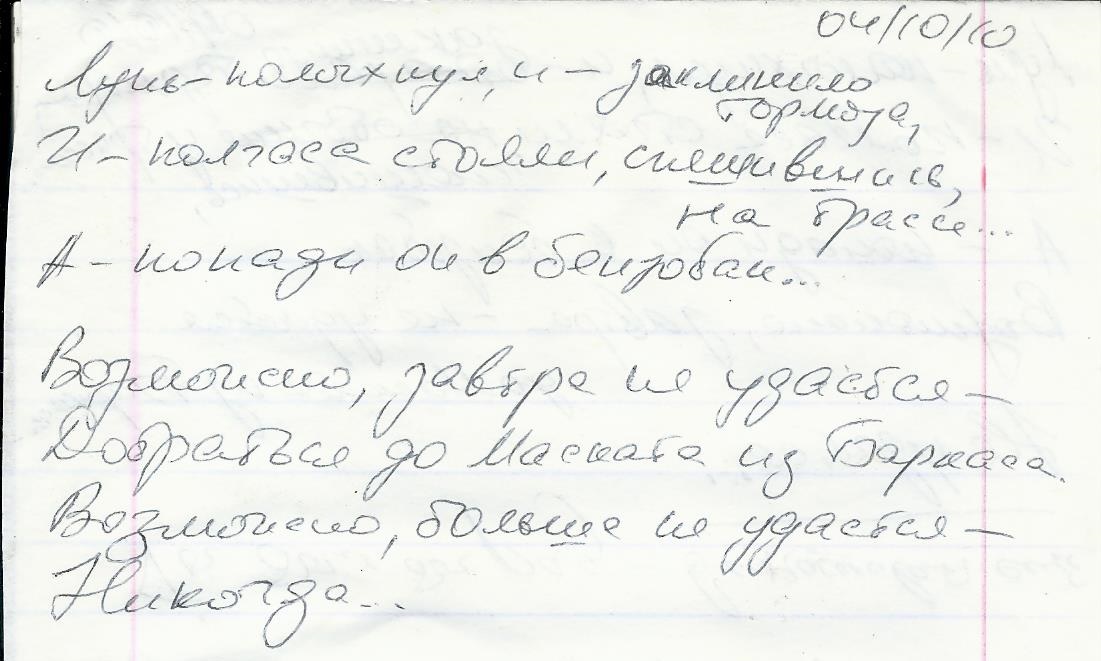 04/10/10
Лунь – колыхнул, и – заклинило
тормоза,
И – полчаса стояли, спешившись,
на трассе...
А – попади он в бензобак...
Возможно, завтра не удастся –
Добраться до Маската из Баркаса.
Возможно, больше не удастся –
Никогда...